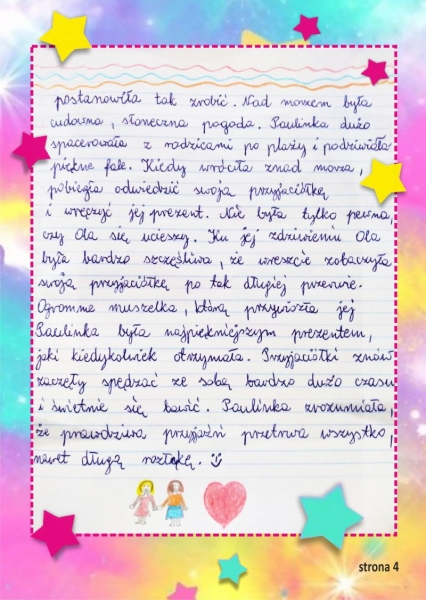 postanowiła tak zrobić. Nad morzem była
cudowna, słoneczna pogoda. Paulinka dużo
spacerowała z rodzicami po plaży i podziwiała
piękne fale. Kiedy wróciła znad morza,
pobiegła odwiedzić swoją przyjaciółkę
i wręczyć jej prezent. Nie była tylko pewna,
czy Ola się ucieszy. Ku jej zdziwieniu Ola
była bardzo szczęśliwa, że wreszcie zobaczyła
swoją przyjaciółkę po tak długiej przerwie.
Ogromna muszelka, którą przywiozła jej
Paulinka była najpiękniejszym prezentem,
jaki kiedykolwiek otrzymała. Przyjaciółki znów
zaczęły spędzać ze sobą bardzo dużo czasu
i świetnie się bawić. Paulinka zrozumiała,
że prawdziwa przyjaźń przetrwa wszystko,
nawet długą rozłąkę.
strona 4